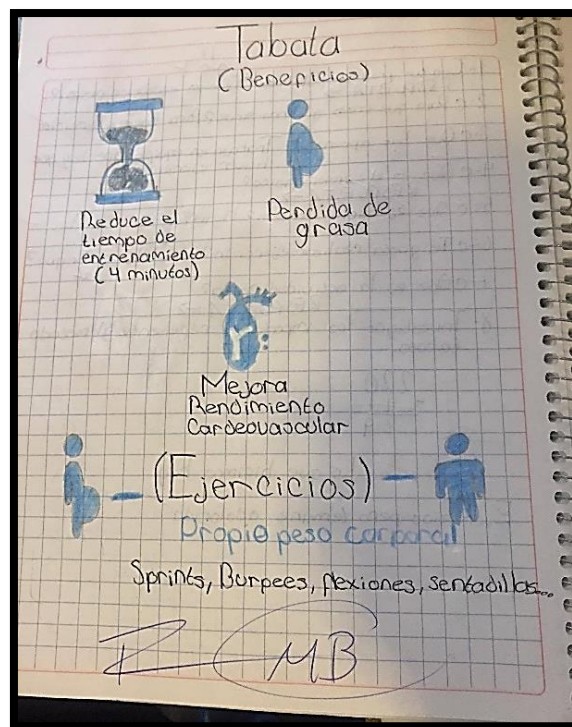 Tabata
(Beneficios)
Reduce el
tiempo de
entrenamiento
(4 minutos)
Perdida de
grasa
Mejora
Rendimiento
Cardeovascular
(Ejercicios)
Propio peso corporal
Sprints, Burpees, flexiones, sentadillas...
MB